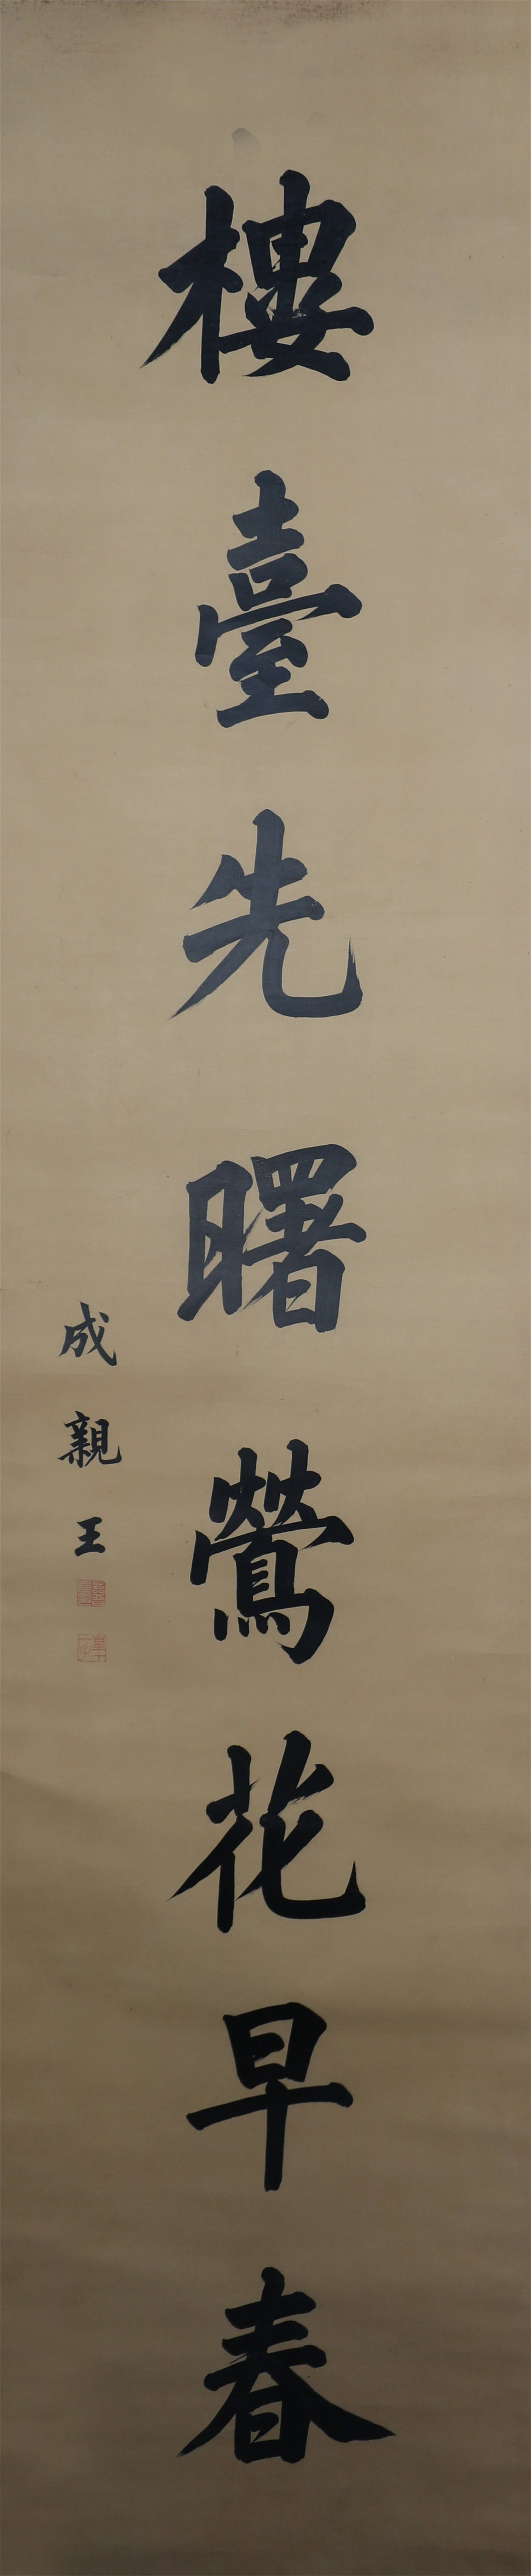 樓臺先曙鶯花早春
成親王